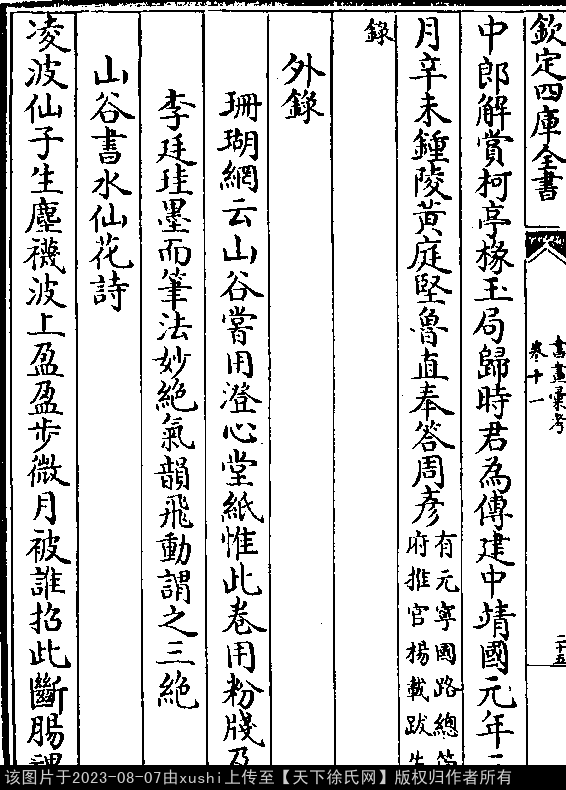 欽定四庫全書
書畫彙考
卷十一
二十五
中郎解賞柯亭椽玉局歸時君為傳建中靖國元年
月辛未鍾陵黃庭堅魯直奉答周彦
有元寧國路總
府推官楊載跋
錄
外錄
珊瑚網云山谷嘗用澄心堂紙惟此卷用粉牋及
李廷珪墨而筆法妙絶氣韻飛動謂之三絶
山谷書水仙花詩
凌波仙子生塵襪波上盈盈步微月被誰招此斷腸
该图片于2023-08-07由xushi上传至【天下徐氏网】版权归作者所有